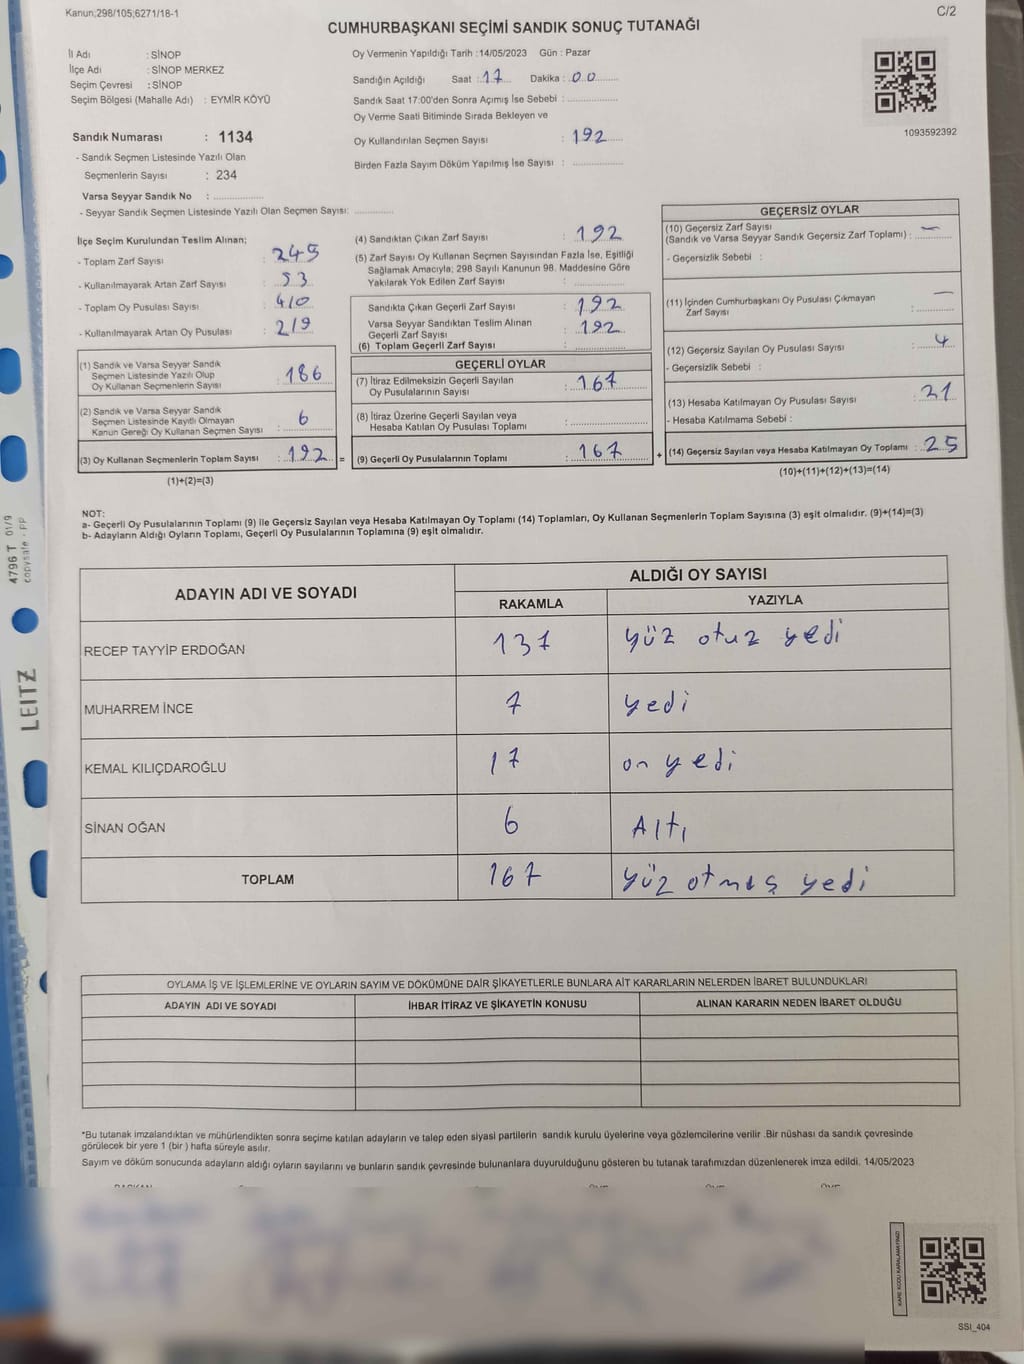 Kanun;298/105;6271/18-1
C/2
CUMHURBAŞKANI SEÇİMİ SANDIK SONUÇ TUTANAĞI
İl Adı : SİNOP
İlçe Adı : SİNOP MERKEZ
Seçim Çevresi : SİNOP
Seçim Bölgesi (Mahalle Adı) : EYMİR KÖYÜ
Sandık Numarası : 1134
- Sandık Seçmen Listesinde Yazılı Olan
Seçmenlerin Sayısı : 234
Varsa Seyyar Sandık No : ...............
- Seyyar Sandık Seçmen Listesinde Yazılı Olan Seçmen Sayısı: ............
Oy Vermenin Yapıldığı Tarih :14/05/2023 Gün : Pazar
Sandığın Açıldığı Saat : 17 Dakika : 00
Sandık Saat 17:00'den Sonra Açımış İse Sebebi : ...............
Oy Verme Saati Bitiminde Sırada Bekleyen ve
Oy Kullandırılan Seçmen Sayısı : 192
Birden Fazla Sayım Döküm Yapılmış İse Sayısı : ...............
1093592392
İlçe Seçim Kurulundan Teslim Alınan;
- Toplam Zarf Sayısı : 245
- Kullanılmayarak Artan Zarf Sayısı : 53
- Toplam Oy Pusulası Sayısı : 410
- Kullanılmayarak Artan Oy Pusulası : 219
(1) Sandık ve Varsa Seyyar Sandık
Seçmen Listesinde Yazılı Olup
Oy Kullanan Seçmenlerin Sayısı : 186
(2) Sandık ve Varsa Seyyar Sandık
Seçmen Listesinde Kayıtlı Olmayan
Kanun Gereği Oy Kullanan Seçmen Sayısı : 6
(3) Oy Kullanan Seçmenlerin Toplam Sayısı : 192 =
(1)+(2)=(3)
(4) Sandıktan Çıkan Zarf Sayısı : 192
(5) Zarf Sayısı Oy Kullanan Seçmen Sayısından Fazla İse, Eşitliği
Sağlamak Amacıyla; 298 Sayılı Kanunun 98. Maddesine Göre
Yakılarak Yok Edilen Zarf Sayısı : ...............
Sandıkta Çıkan Geçerli Zarf Sayısı : 192
Varsa Seyyar Sandıktan Teslim Alınan
Geçerli Zarf Sayısı : 192
(6) Toplam Geçerli Zarf Sayısı : ...............
GEÇERLİ OYLAR
(7) İtiraz Edilmeksizin Geçerli Sayılan
Oy Pusulalarının Sayısı : 167
(8) İtiraz Üzerine Geçerli Sayılan veya
Hesaba Katılan Oy Pusulası Toplamı : ...............
(9) Geçerli Oy Pusulalarının Toplamı : 167 +
GEÇERSİZ OYLAR
(10) Geçersiz Zarf Sayısı
(Sandık ve Varsa Seyyar Sandık Geçersiz Zarf Toplamı) : —
- Geçersizlik Sebebi :
(11) İçinden Cumhurbaşkanı Oy Pusulası Çıkmayan
Zarf Sayısı : —
(12) Geçersiz Sayılan Oy Pusulası Sayısı : 4
- Geçersizlik Sebebi :
(13) Hesaba Katılmayan Oy Pusulası Sayısı : 21
- Hesaba Katılmama Sebebi :
(14) Geçersiz Sayılan veya Hesaba Katılmayan Oy Toplamı : 25
(10)+(11)+(12)+(13)=(14)
NOT:
a- Geçerli Oy Pusulalarının Toplamı (9) ile Geçersiz Sayılan veya Hesaba Katılmayan Oy Toplamı (14) Toplamları, Oy Kullanan Seçmenlerin Toplam Sayısına (3) eşit olmalıdır. (9)+(14)=(3)
b- Adayların Aldığı Oyların Toplamı, Geçerli Oy Pusulalarının Toplamına (9) eşit olmalıdır.
ADAYIN ADI VE SOYADI
ALDIĞI OY SAYISI
RAKAMLA YAZIYLA
RECEP TAYYİP ERDOĞAN 137 yüz otuz yedi
MUHARREM İNCE 7 yedi
KEMAL KILIÇDAROĞLU 17 on yedi
SİNAN OĞAN 6 Altı
TOPLAM 167 yüz otmış yedi
OYLAMA İŞ VE İŞLEMLERİNE VE OYLARIN SAYIM VE DÖKÜMÜNE DAİR ŞİKAYETLERLE BUNLARA AİT KARARLARIN NELERDEN İBARET BULUNDUKLARI
ADAYIN ADI VE SOYADI İHBAR İTİRAZ VE ŞİKAYETİN KONUSU ALINAN KARARIN NEDEN İBARET OLDUĞU
*Bu tutanak imzalandıktan ve mühürlendikten sonra seçime katılan adayların ve talep eden siyasi partilerin sandık kurulu üyelerine veya gözlemcilerine verilir .Bir nüshası da sandık çevresinde
görülecek bir yere 1 (bir ) hafta süreyle asılır.
Sayım ve döküm sonucunda adayların aldığı oyların sayılarını ve bunların sandık çevresinde bulunanlara duyurulduğunu gösteren bu tutanak tarafımızdan düzenlenerek imza edildi. 14/05/2023
KARE KODU KARALAMAYINIZ!
SSİ_404
LEITZ
4796 T 01/9
copysafe - PP